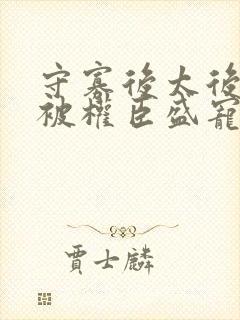 守寡後太後
被權臣盛寵
賈士麟